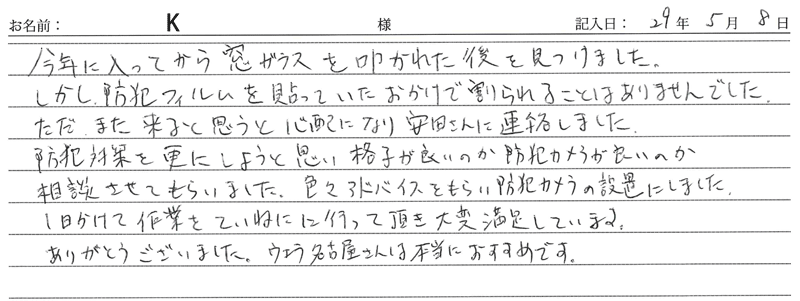 お名前： K 様 記入日： 29年 5月 8日
今年に入ってから 窓ガラスを叩かれた後を見つけました。
しかし、防犯フィルムを貼っていたおかげで割られることはありませんでした。
ただ、また来ると思うと心配になり安田さんに連絡しました。
防犯対策を更にしようと思い 格子が良いのか防犯カメラが良いのか
相談させてもらいました。色々アドバイスをもらい防犯カメラの設置にしました。
1日かけて作業をていねいに行って頂き大変満足しています。
ありがとうございました。ウエラ名古屋さんは本当におすすめです。